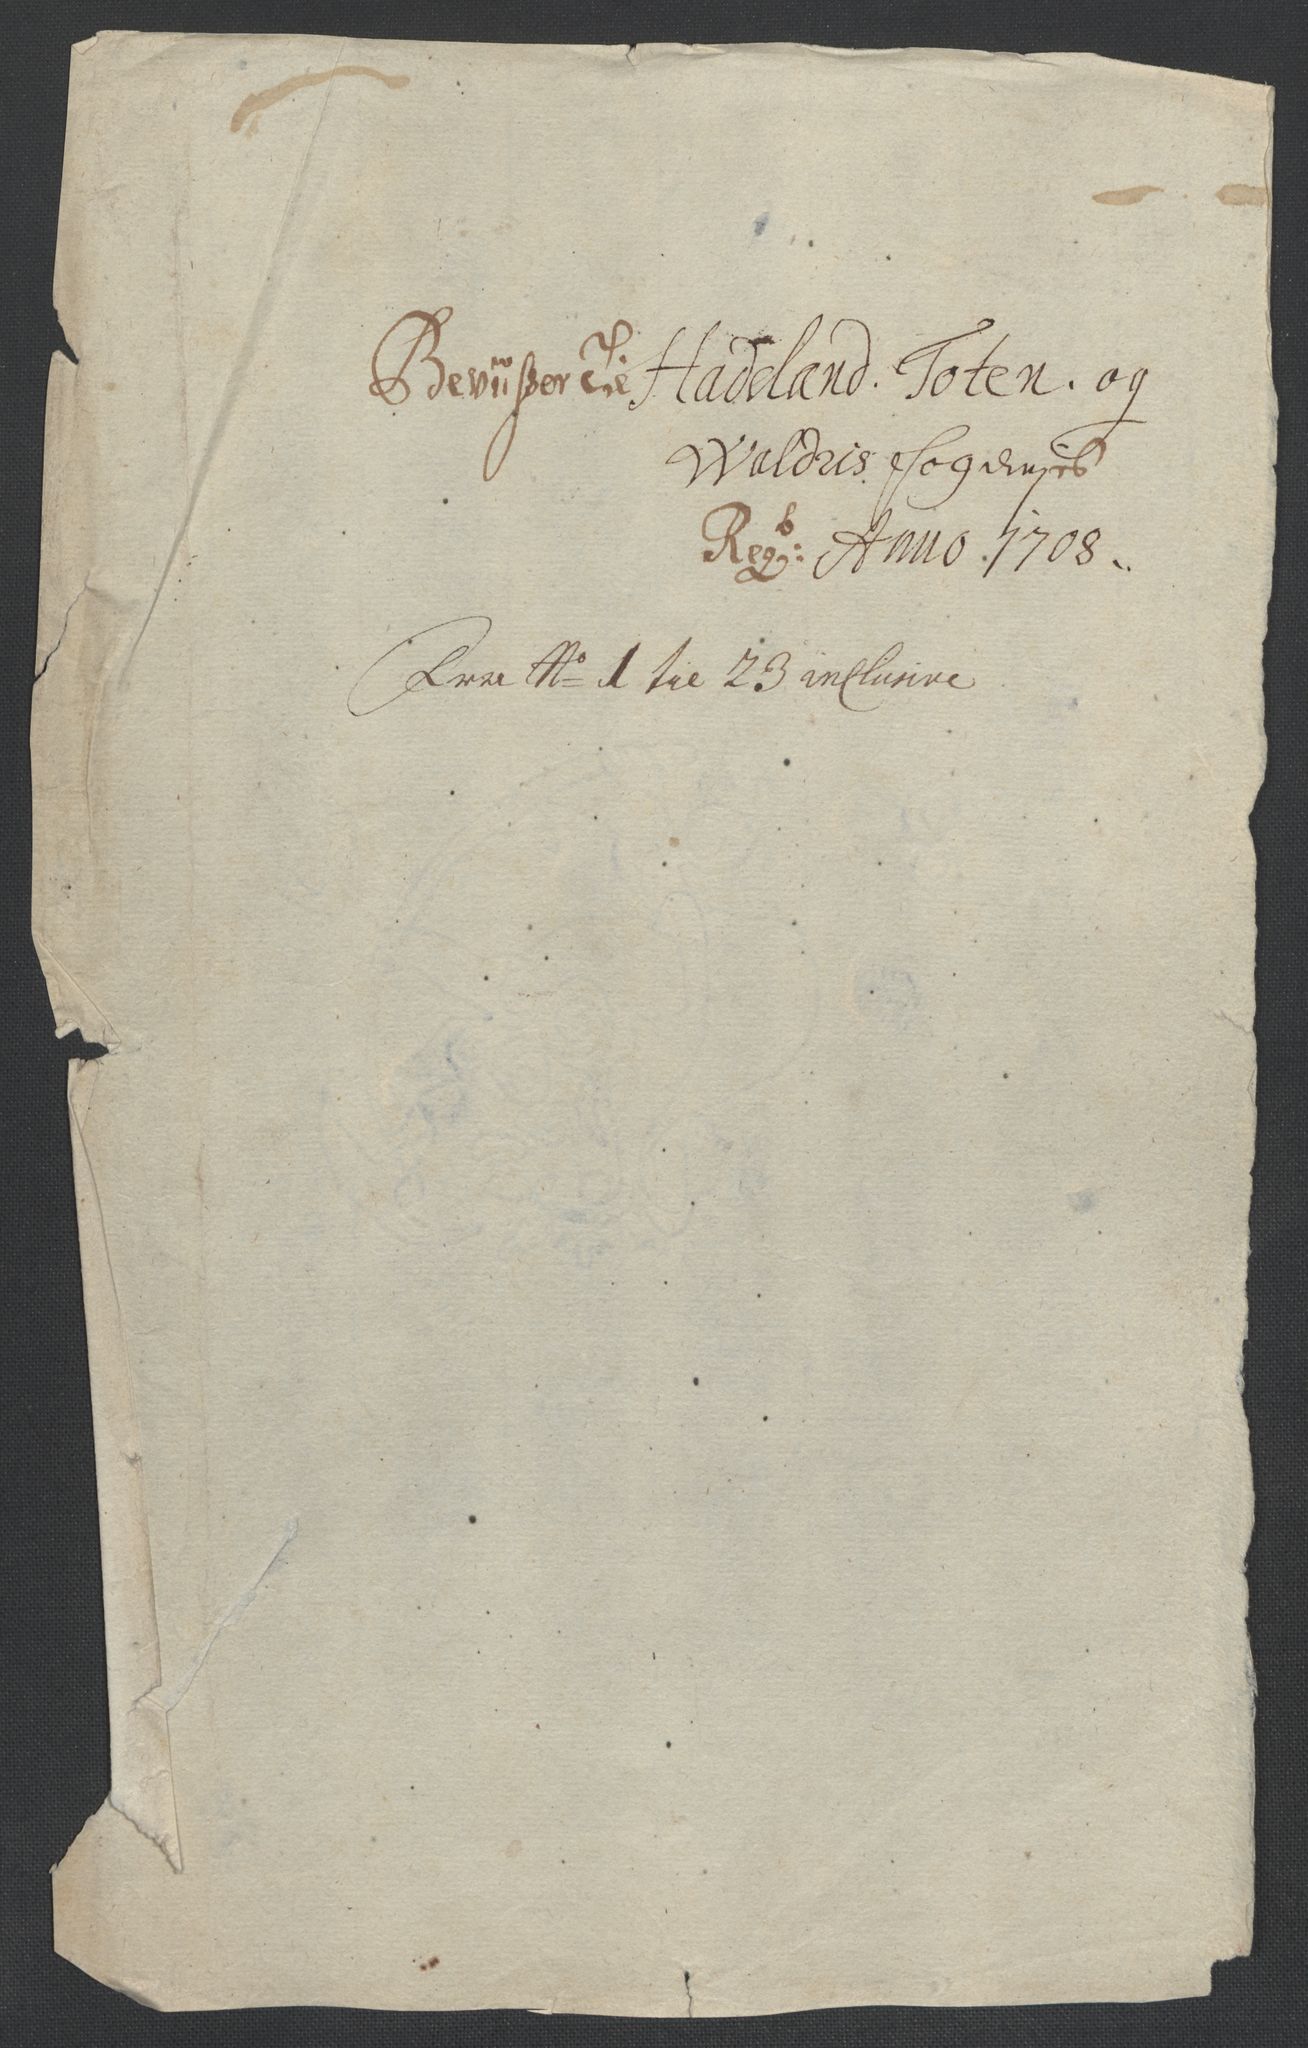 Beviißer Til Hadeland. Toten. og
Waldris fogderjes
Regsb: Anno 1708.
Fra No 1 til 23 inclusive